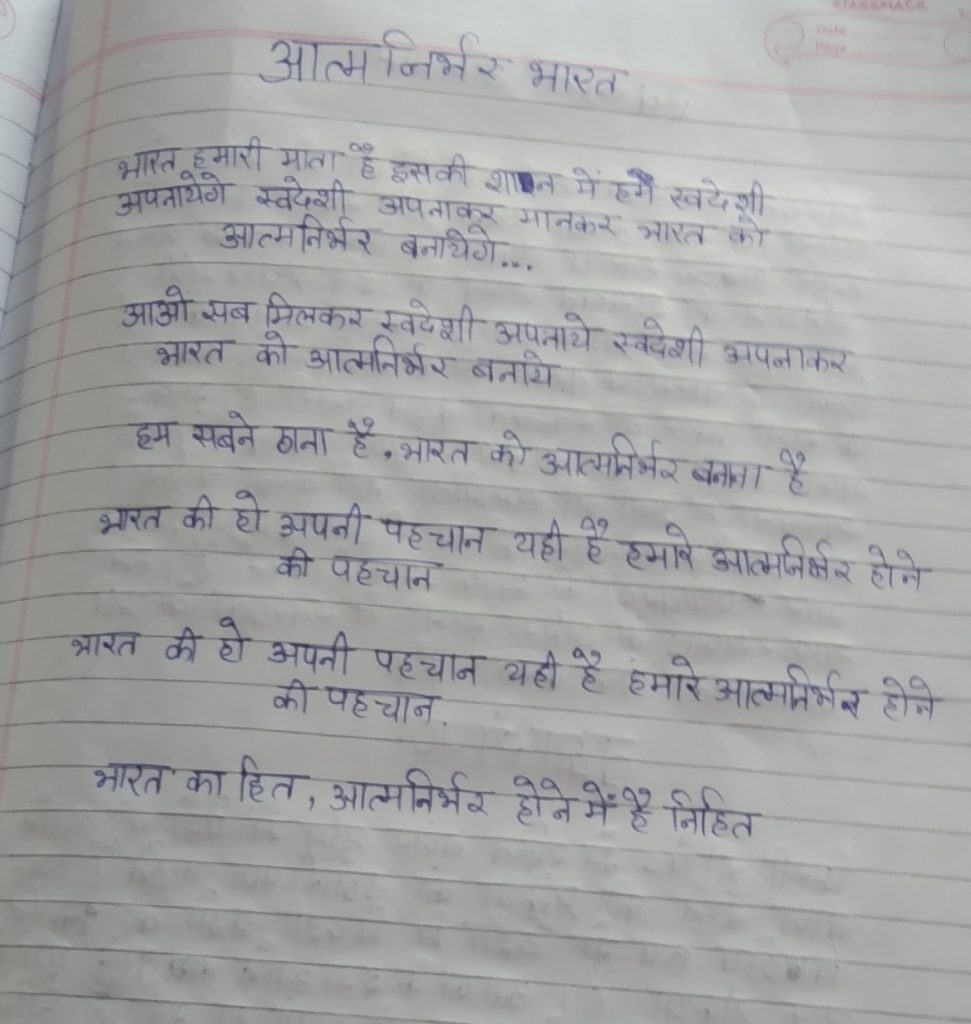 classmate
Date
Page
आत्मनिर्भर भारत
भारत हमारी माता है इसकी शान में हम स्वदेशी
अपनायेगे स्वदेशी अपनाकर मानकर भारत को
आत्मनिर्भर बनायेगे...
आओ सब मिलकर स्वदेशी अपनाये स्वदेशी अपनाकर
भारत को आत्मनिर्भर बनाये
हम सबने ठाना है, भारत को आत्मनिर्भर बनाना है
भारत की हो अपनी पहचान यही है हमारे आत्मनिर्भर होने
की पहचान
भारत की हो अपनी पहचान यही है हमारे आत्मनिर्भर होने
की पहचान.
भारत का हित, आत्मनिर्भर होने में है निहित